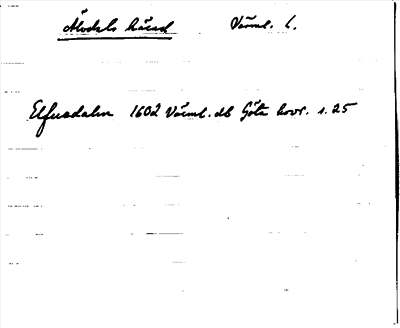 Älvdals härad Värml. l.
Elfuedalm 1602 Värml. db Göta hovr. s. 25